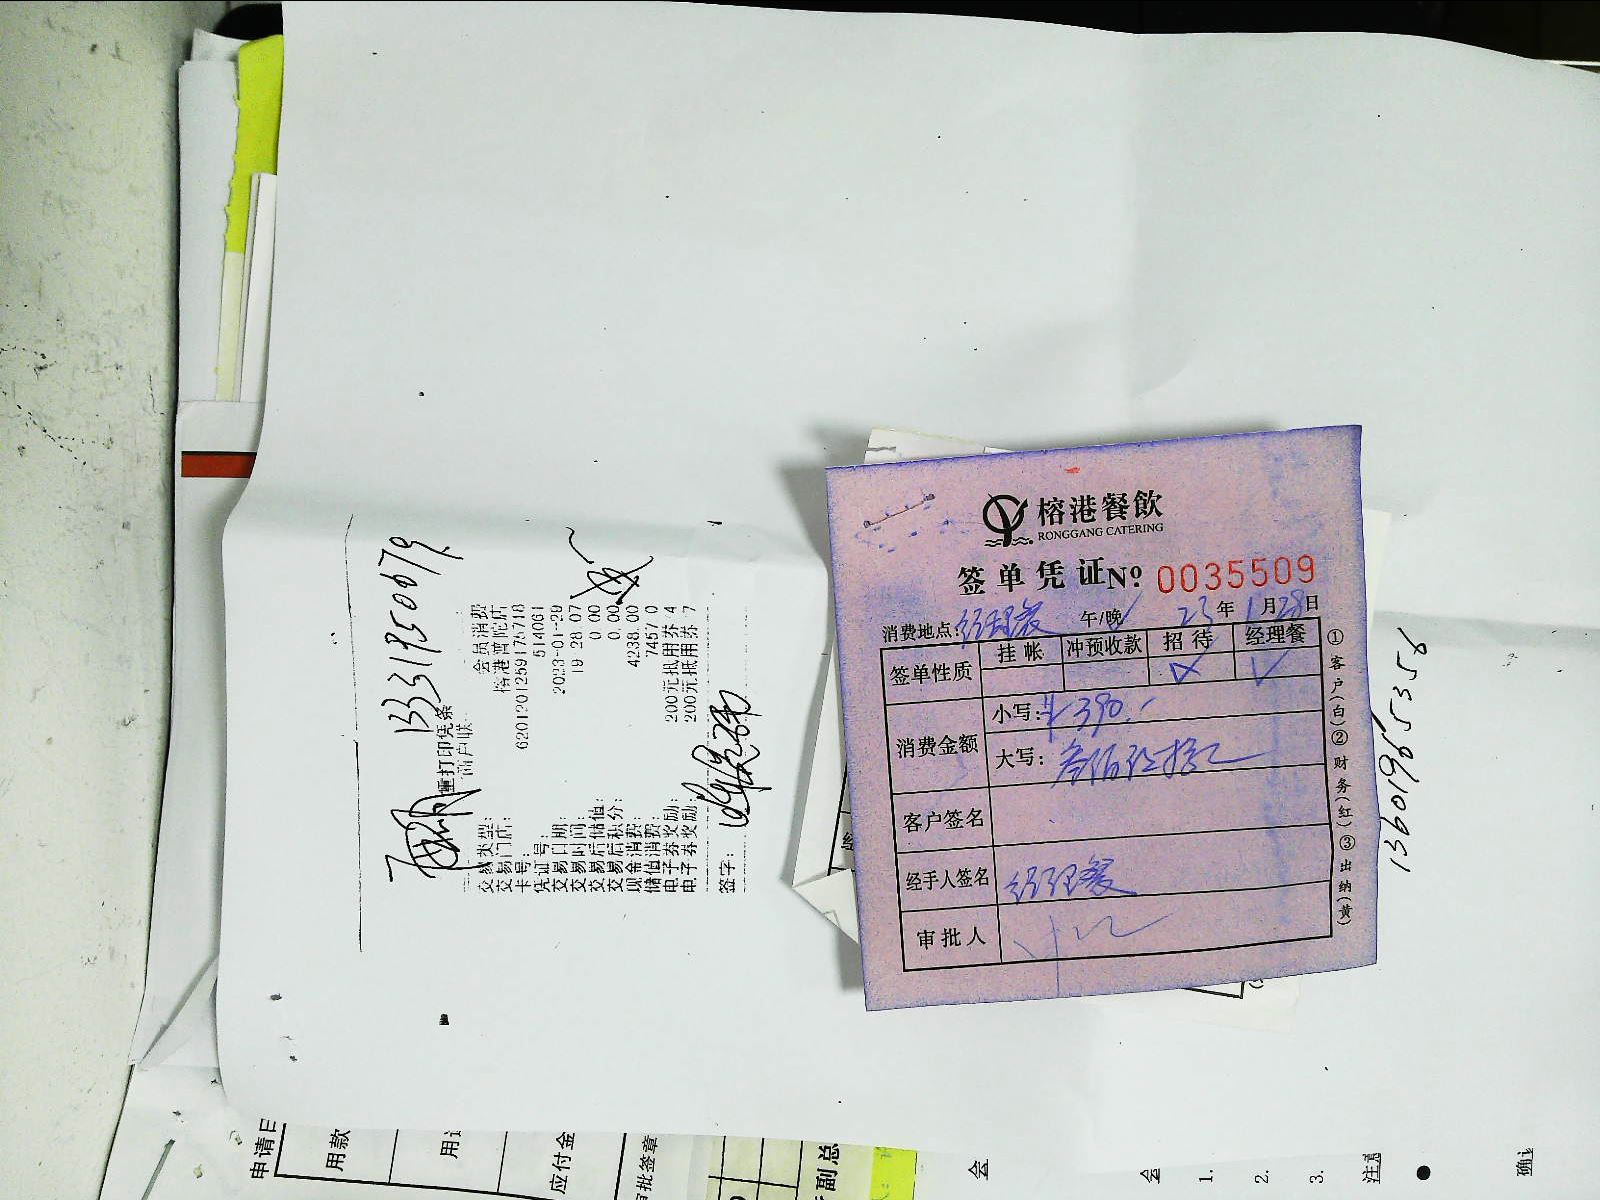 榕港餐飲
RONGGANG CATERING
签单凭证No 0035509
消费地点:经理餐 午/晚 23年1月28日
签单性质 挂帐 冲预收款 招待 经理餐
消费金额 小写:¥390.-
大写:叁佰玖拾元
客户签名
经手人签名 经理餐
审批人
①客户(白)②财务(红)③出纳(黄)
13601965356
13319350679
重打印凭条
商户联
交易类型: 会员消费
交易门店: 榕港普陀店
卡号: 6201201259175718
凭证号: 514061
交易日期: 2023-01-29
交易时间: 19 28 07
交易后储值: 0 00
交易后积分: 0.00
现金消费: 4238.00
储值消费: 7457 0
电子券奖励: 200元抵用券 4
电子券奖励: 200元抵用券 7
签字:
申请日
用款
应付金
审批签章
副总
会
会
1.
2.
3.
注意
确认